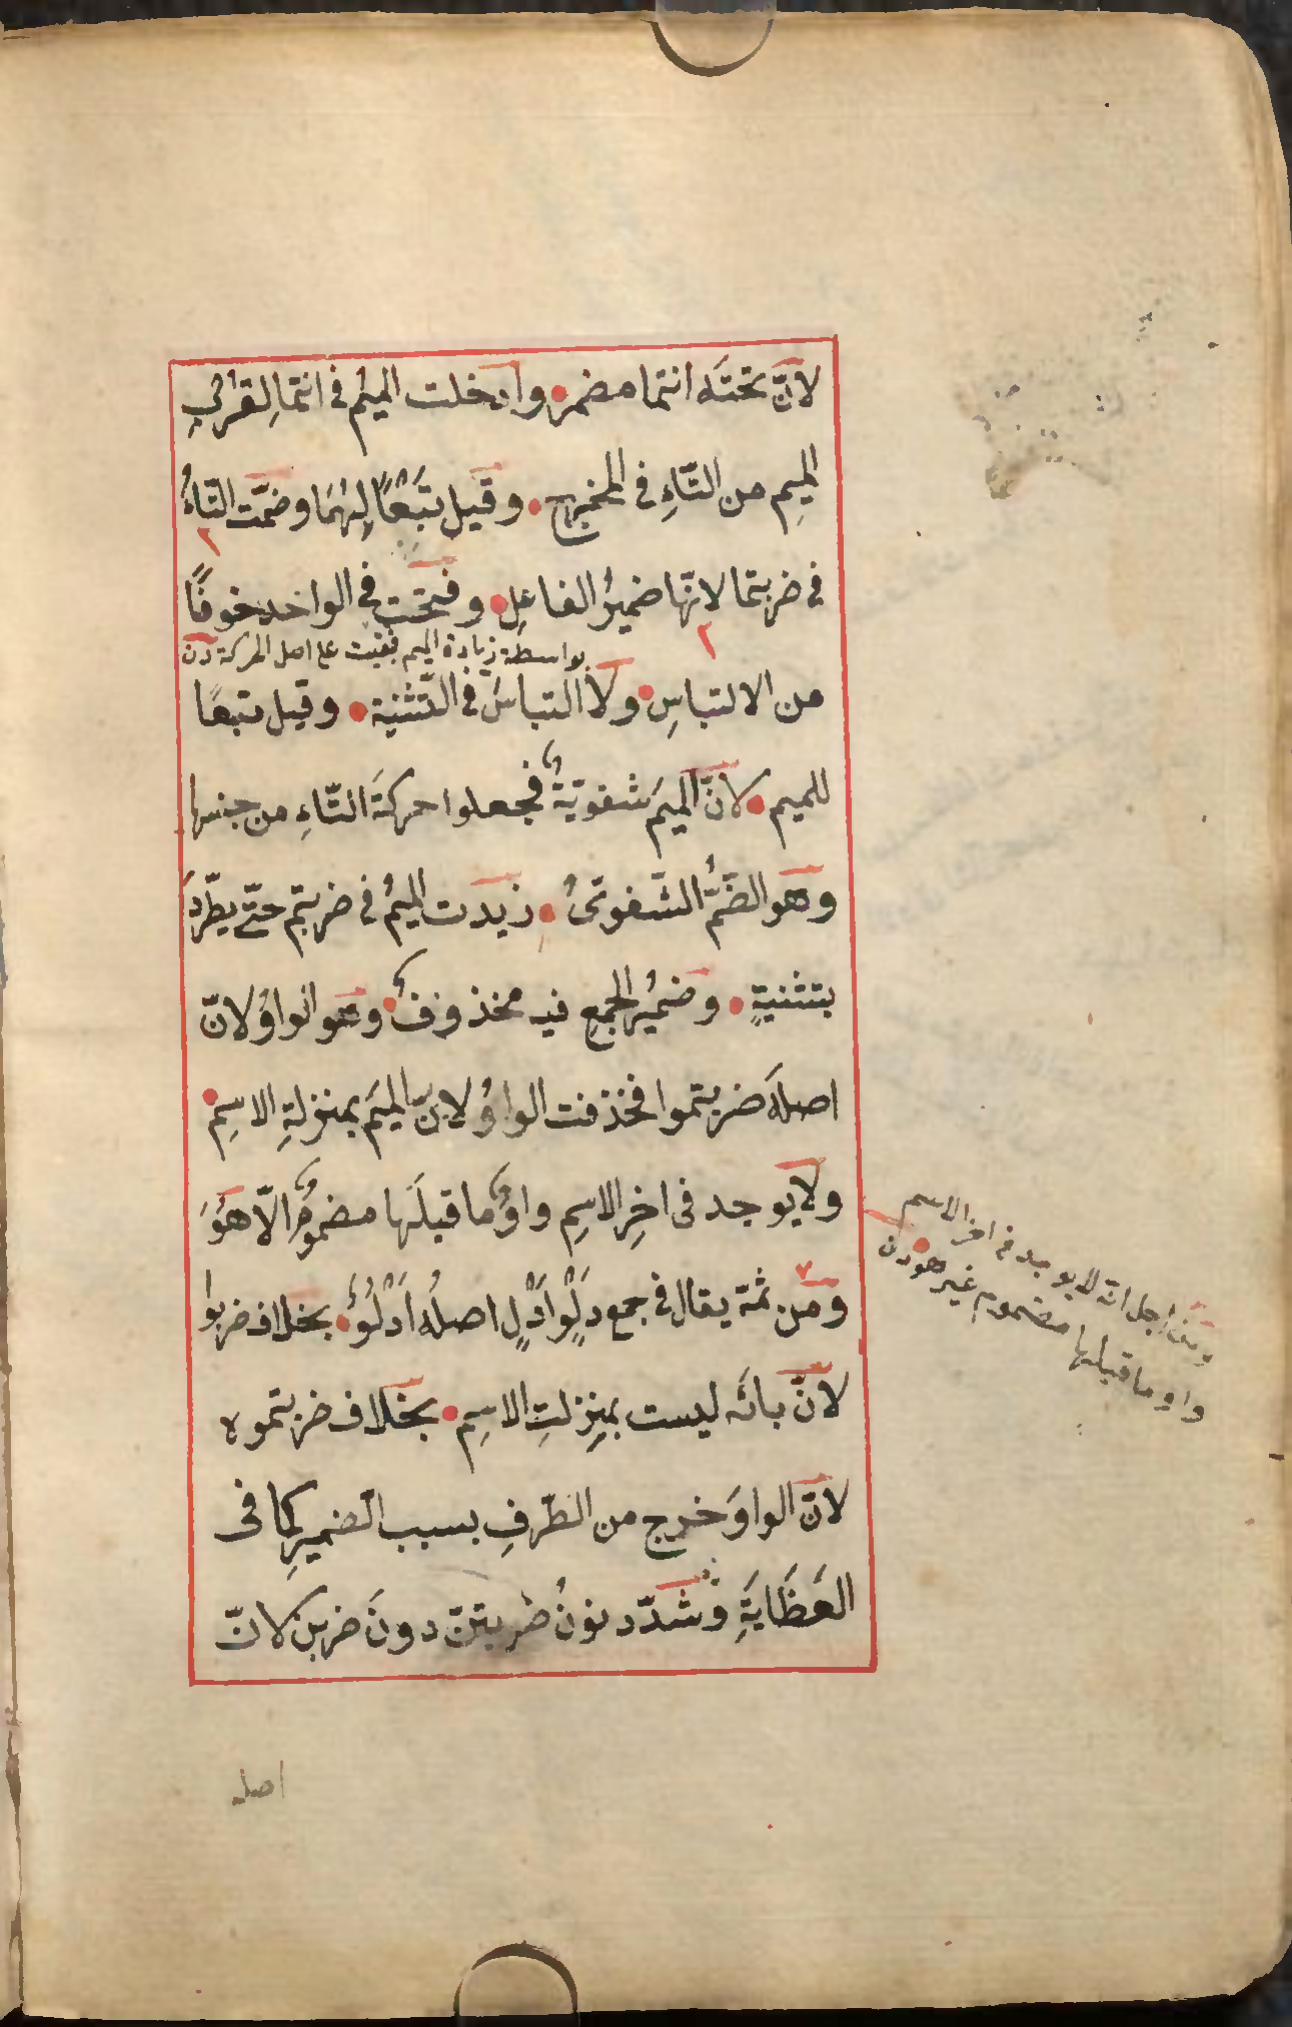 لانّ تحتَه انتما مضمر وادخلت الميمُ في انتما لِقربِ
الميمِ من التّاءِ في المخرج وقيل تَبَعًا لِهُمَا وضمّت التّاءُ
في ضربتما لانّها ضميرُ الفاعلِ وفتحَت في الواحد خوفًا
بواسطة زيادة الميم فبقيت على اصل الحركة دن
من الالتباسِ ولا التباسَ في التّثنية وقيل تبعًا
للميم لانّ الميمَ شفويّةٌ فجعلوا حركةَ التّاءِ من جنسها
وهو الضّمُّ الشّفوىّ زيدت الميمُ في ضربتم حتّى يطّردَ
بتثنيةٍ وضميرُ الجمع فيه محذوفٌ وهو الواوُ لانّ
اصلَه ضربتموا فحذفت الواوُ لانّ الميمَ بمنزلةِ الاسِم
ولا يوجد فى اخرِ الاسِمِ واوٌ ما قبلَها مضمومٌ الّا هُوَ
ومن ثمة يقال في جمع دَلْوٍ اَدْلٍ اصلُه اَدْلُوٌ بخلاف ضربوا
لانّ بائَه ليست بمنزلتِ الاسِم بخلاف ضربتموه
لانّ الواوَ خرج من الطّرفِ بسبب الضّميرِ كما فى
العَظَايَةِ وشدّد نونُ ضربتنّ دونَ ضربن لانّ
ومن اجل انّه لا يوجد في اخر الاسم
واو ما قبلها مضموم غير هو دن
اصله